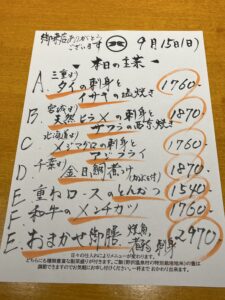 御来店ありがとう
ございます
9月15日(日)
本日の主菜
A. 三重より
タイの刺身と
イサキの塩焼き 1760-
B. 宮城より
天然ヒラメの刺身と
サワラの西京焼き 1870-
C 北海道より
メジマグロの刺身と
アジフライ 1760-
D. 千葉より
金目鯛煮つけ 1870-
E. 重ねロースのとんかつ 1540-
F. 和牛のメンチカツ 1760-
E. おまかせ御膳 焼魚 刺身 2970-
日々の仕入れによりメニューが変わります。